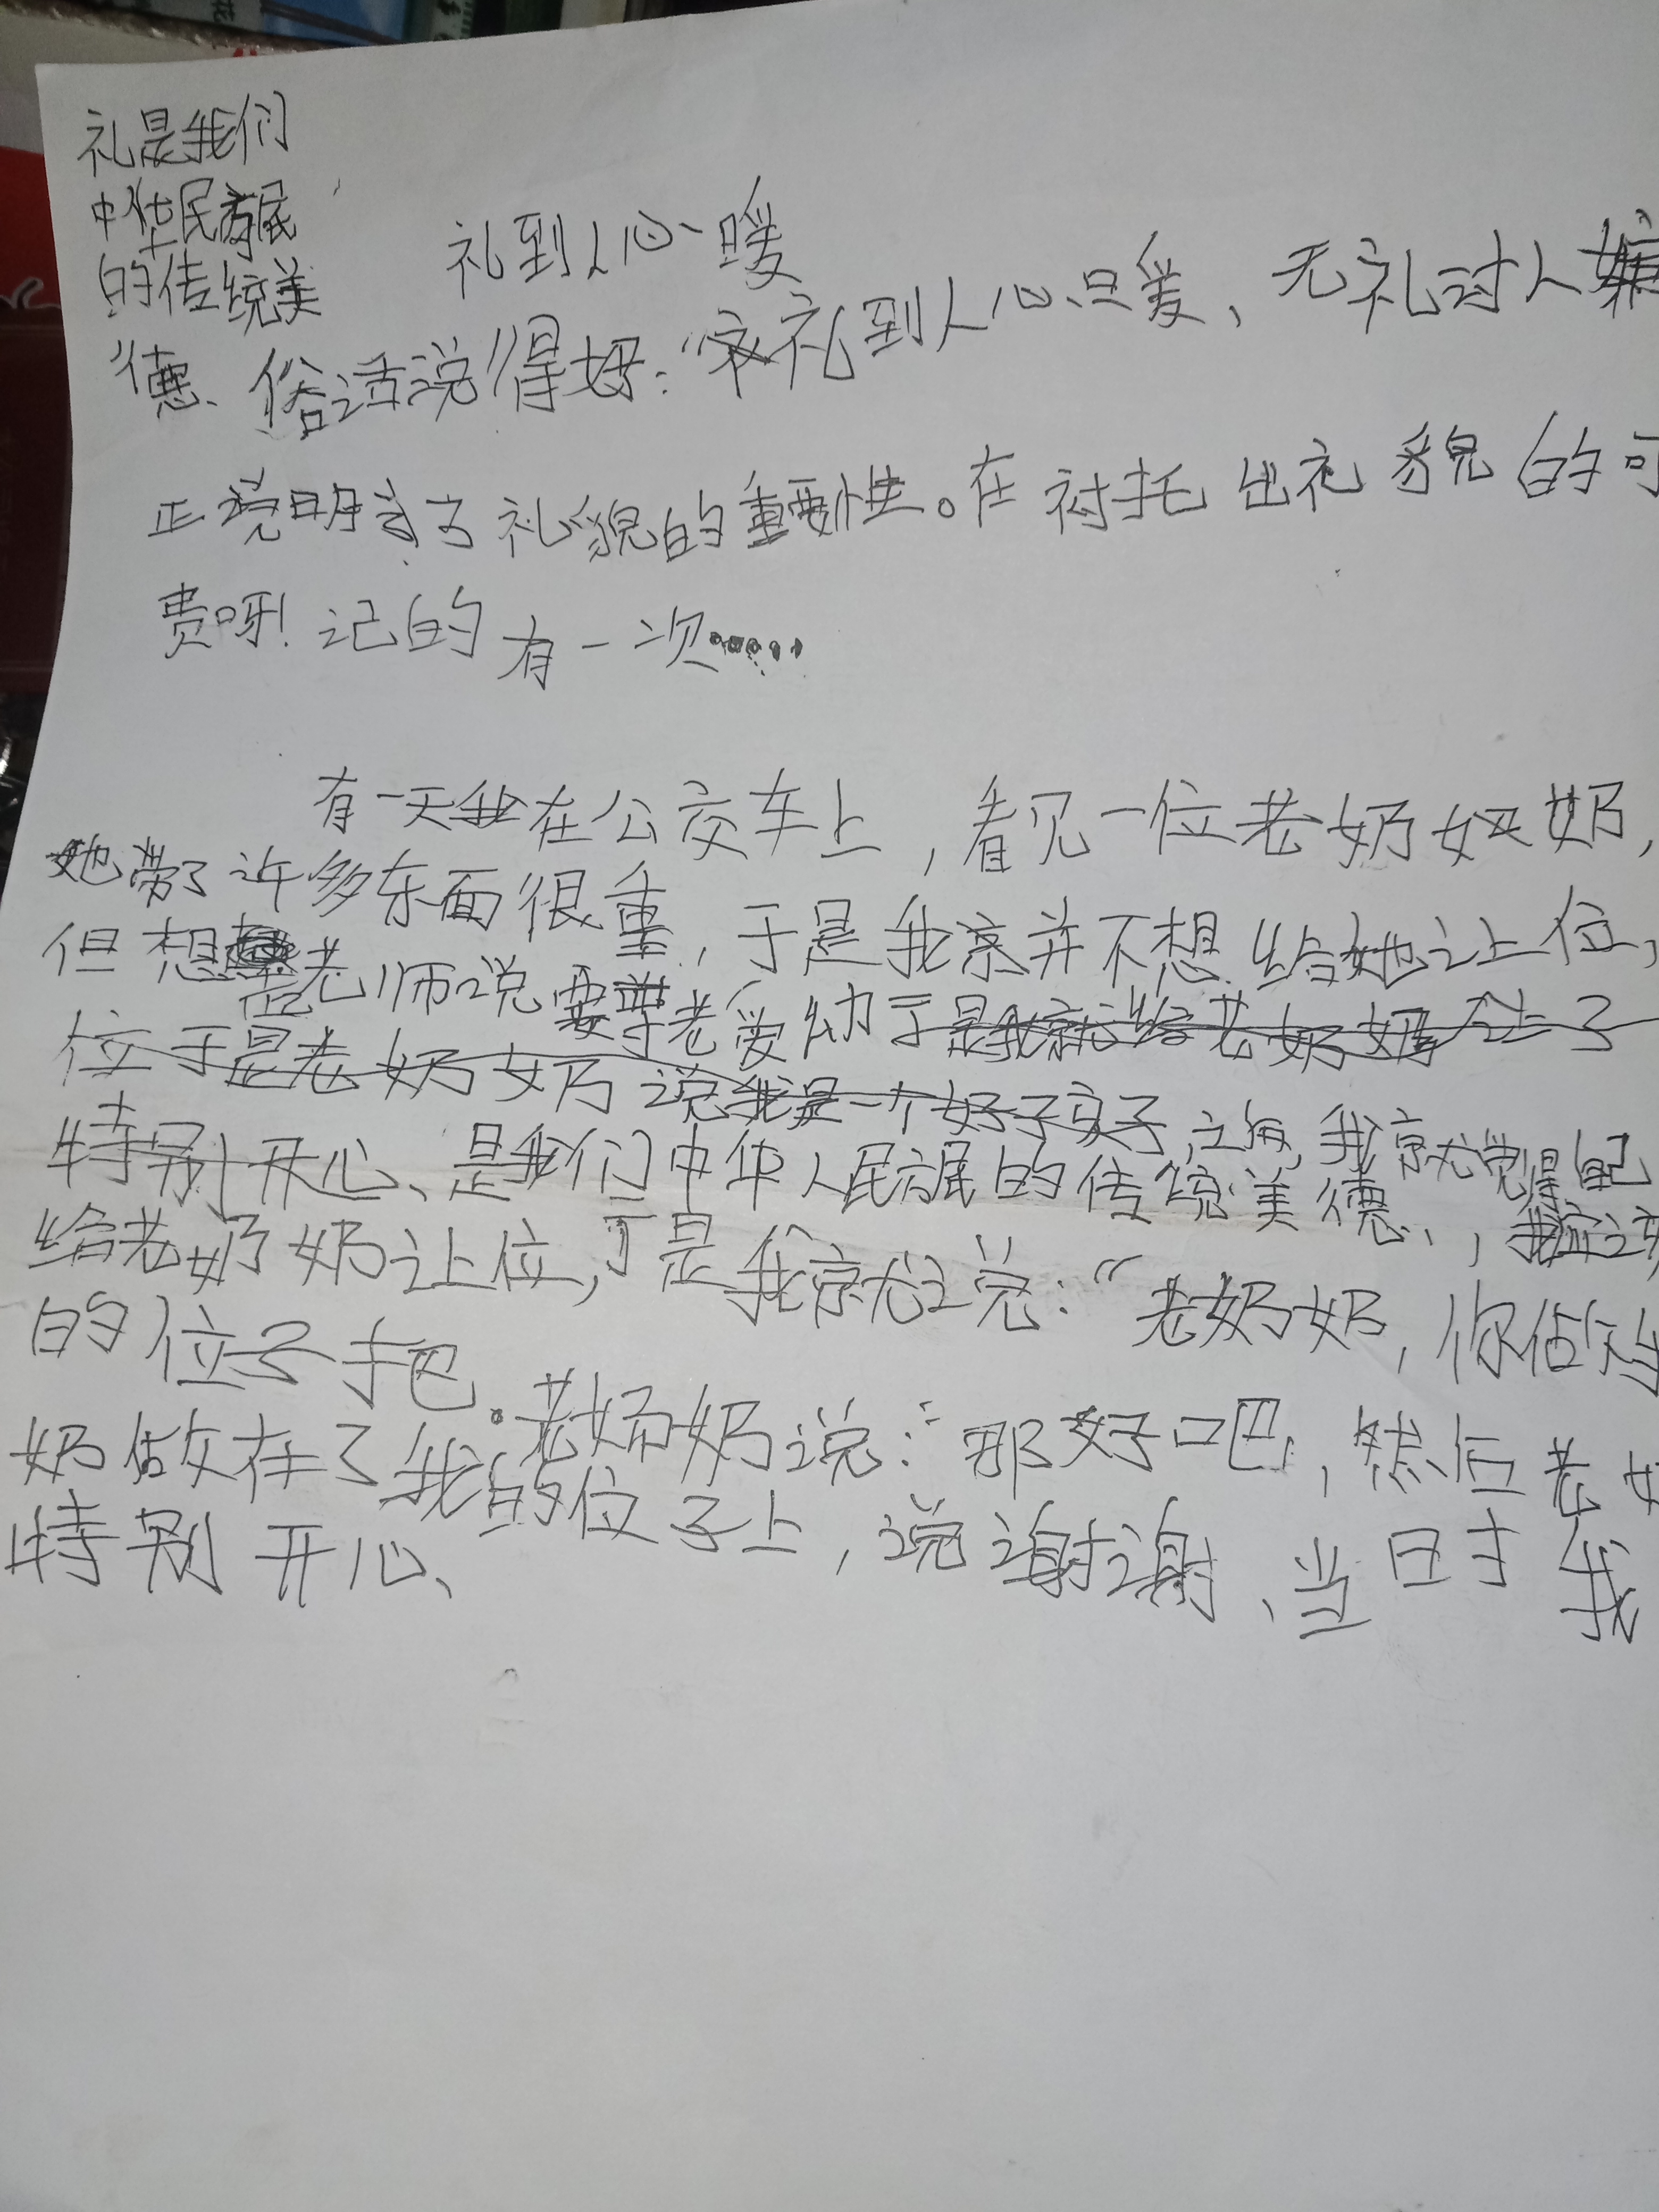 礼是我们
中华民族
的传统美
德、俗话说得好：“礼到人心暖，无礼讨人嫌
礼到人心暖
正说明了礼貌的重要性。在衬托出礼貌的可
贵呀！记的有一次……
有一天我在公交车上，看见一位老奶奶，
她带了许多东面很重，于是我并不想给她让位，
但想老师说要尊老爱幼于是我就给老奶奶让了
位于是老奶奶说我是一个好子孩子，之后，我就觉得自己
特别开心、是我们中华人民族的传统美德、，我应该
给老奶奶让位，于是我就说：“老奶奶，你做
的位子把。老奶奶说：“那好吧，然后老
奶做在了我的位子上，说谢谢、当时我
特别开心、